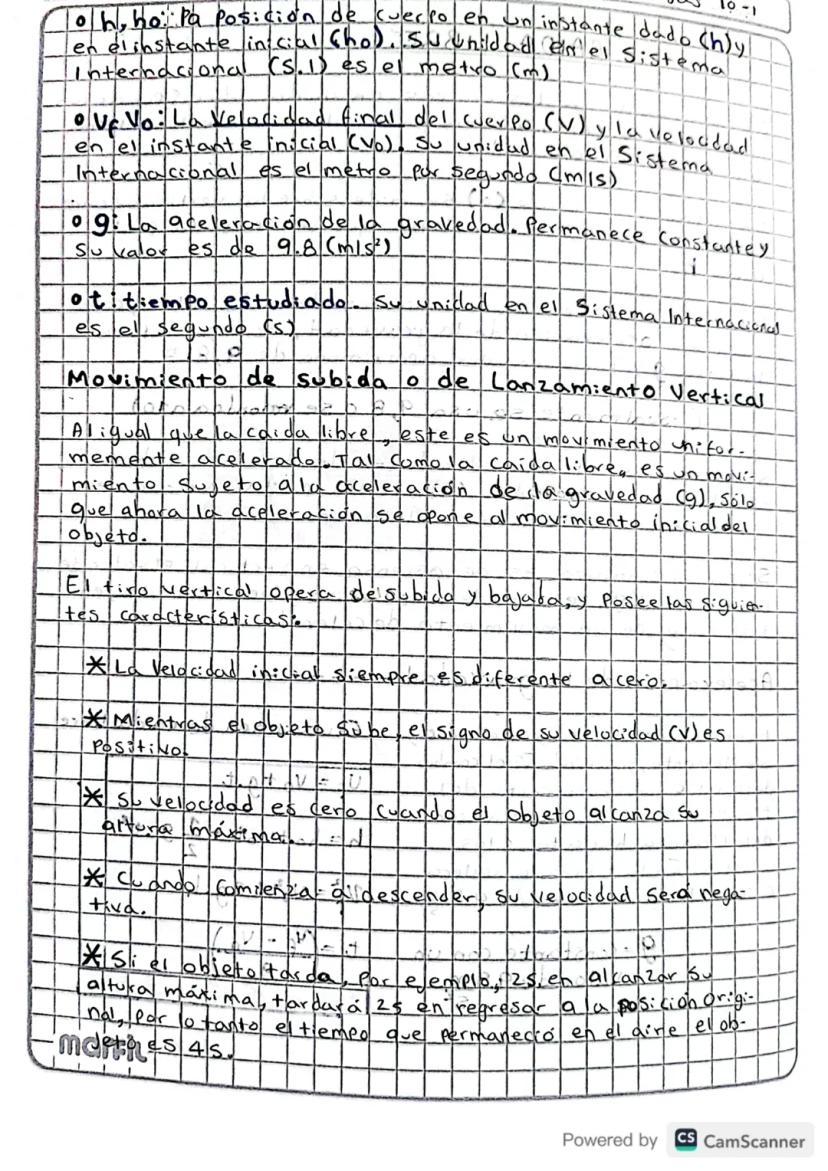 10-1
o h, ho: Pa Posición de cuerpo en un instante dado (h) y
en el instante inicial (ho). Su unidad en el Sistema
Internacional (S.I) es el metro (m)
o Vf Vo: La Velocidad final del cuerpo (V) y la velocidad
en el instante inicial (Vo). su unidad en el Sistema
Internacional es el metro por segundo (m/s)
o g: La aceleración de la gravedad. Permanece constante y
su valor es de 9.8 (m/s²)
o t: tiempo estudiado. su unidad en el Sistema Internacional
es el segundo (s)
Movimiento de subida o de Lanzamiento Vertical
Al igual que la caida libre, este es un movimiento unifor-
memente acelerado. Tal como la caida libre, es un movi-
miento sujeto a la aceleración de la gravedad (g), sólo
que ahora la aceleración se opone al movimiento inicial del
objeto.
El tiro vertical opera de subida y bajada, y Posee las siguien-
tes características:
* La Velocidad inicial siempre es diferente a cero.
* Mientras el objeto sube, el signo de su velocidad (v) es
Positivo.
* Su velocidad es cero cuando el objeto alcanza su
altura máxima.
* Cuando comienza a descender, su velocidad será nega-
tiva.
* Si el objeto tarda, Por ejemplo, 2s. en alcanzar su
altura máxima, tardará 2s en regresar a la posición origi-
nal, por lo tanto el tiempo que permaneció en el aire el ob-
jeto es 4s.
Powered by CS CamScanner